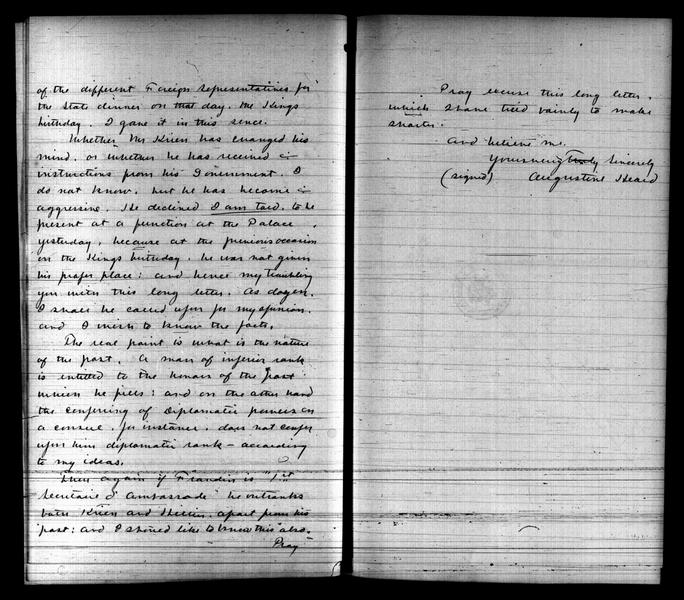 of the different Foreign representatives for
the State dinner on that day. the Kings
birthday. I gave it in this sense.
Whether Mr Krien has changed his
mind, or whether he has received
instructions from his Government. I
do not know, but he has become
aggressive. He declined I am told, to be
present at a function at the Palace,
yesterday, because at the previous occasion
on the Kings birthday, he was not given
his proper place: and hence my troubling
you with this long letter. As doyen,
I shall be called upon for my opinion,
and I wish to know the facts.
The real point is what is the nature
of the post. A man of inferior rank
is entitled to the honors of the post
which he fills: and on the other hand
the conferring of diplomatic powers on
a consul, for instance, does not confer
upon him diplomatic rank - according
to my ideas.
Then again if Frandin is "1st
Secretaire d'Ambassade" he outranks
both Krien and Hillier, apart from his
post: and I should like to know this also.
Pray
Pray excuse this long letter,
which I have tried vainly to make
shorter.
And believe me.
Yours very truly Sincerely
(signed) Augustine Heard